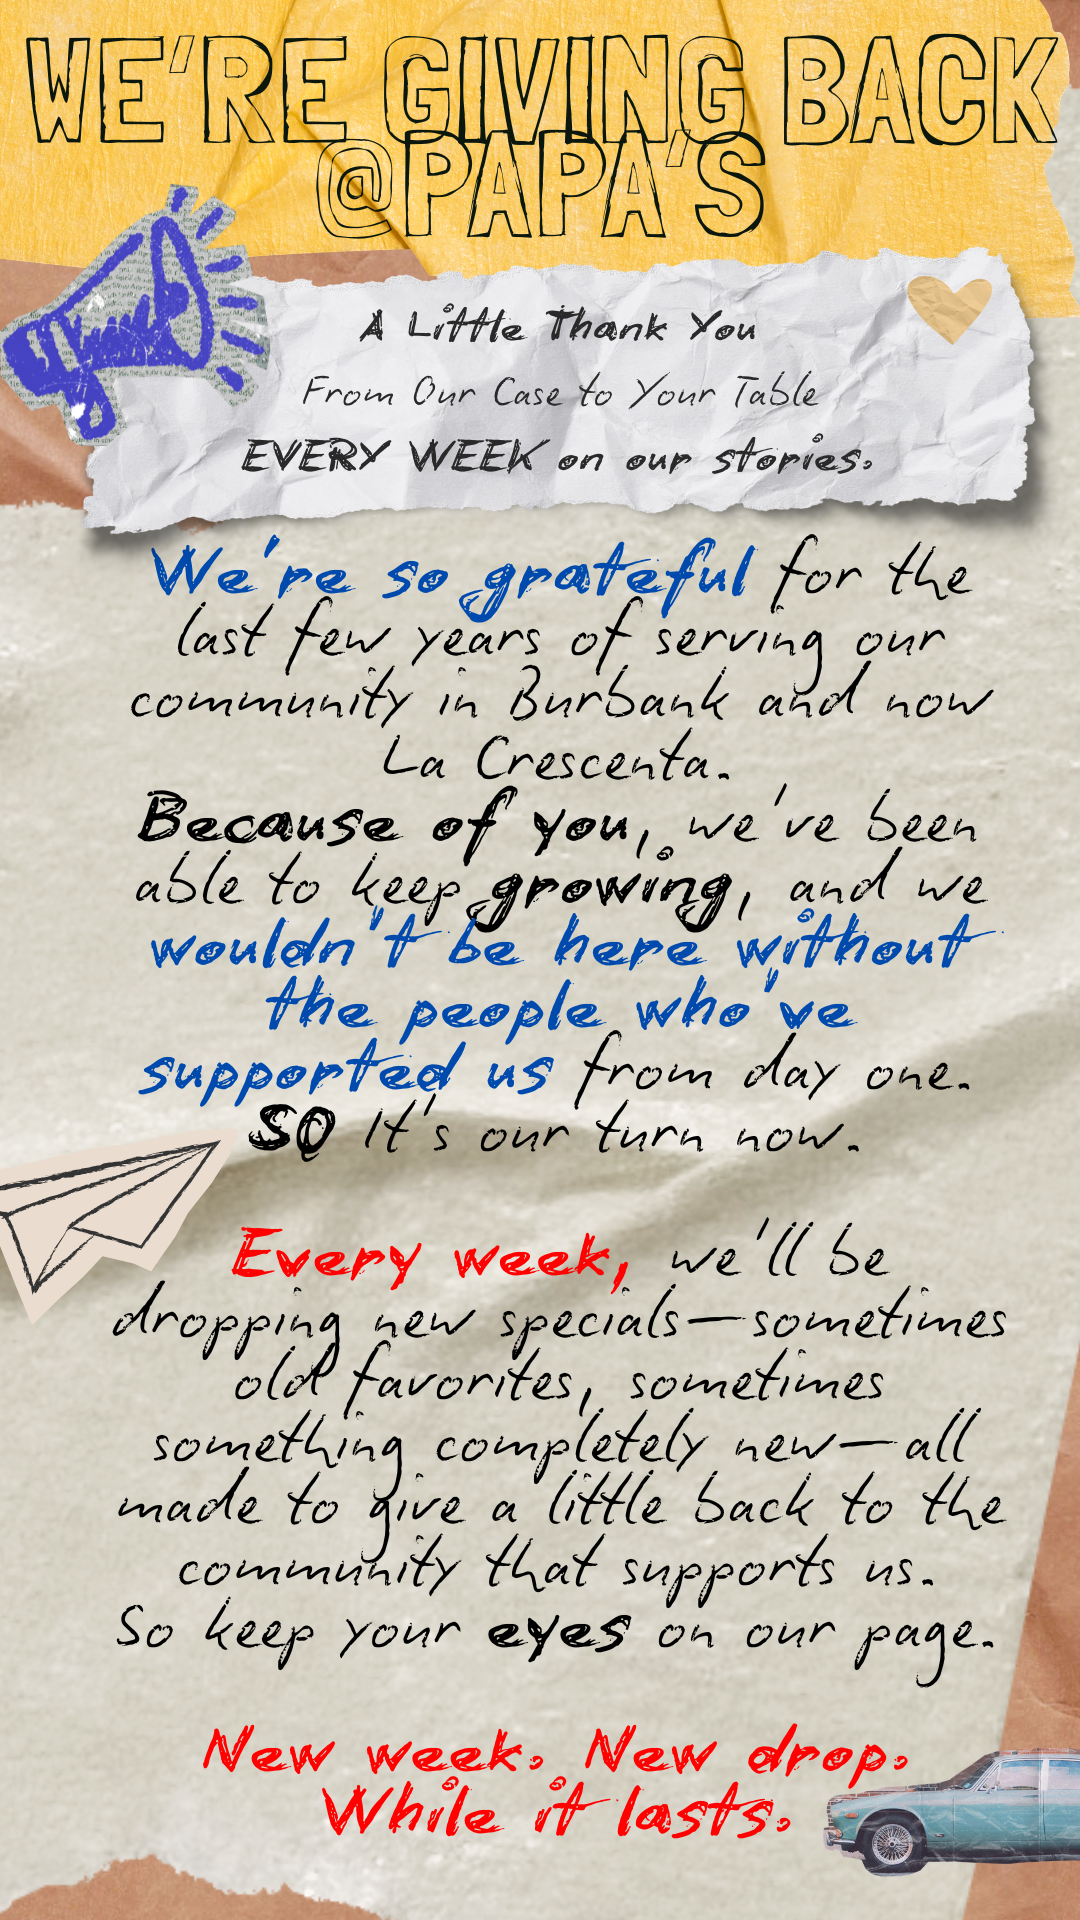 WE'RE GIVING BACK
@PAPA'S
A Little Thank You
From Our Case to Your Table
EVERY WEEK on our stories.
We're so grateful for the
last few years of serving our
community in Burbank and now
La Crescenta.
Because of you, we've been
able to keep growing, and we
wouldn't be here without
the people who've
supported us from day one.
SO It's our turn now.
Every week, we'll be
dropping new specials—sometimes
old favorites, sometimes
something completely new—all
made to give a little back to the
community that supports us.
So keep your eyes on our page.
New week. New drop.
While it lasts.